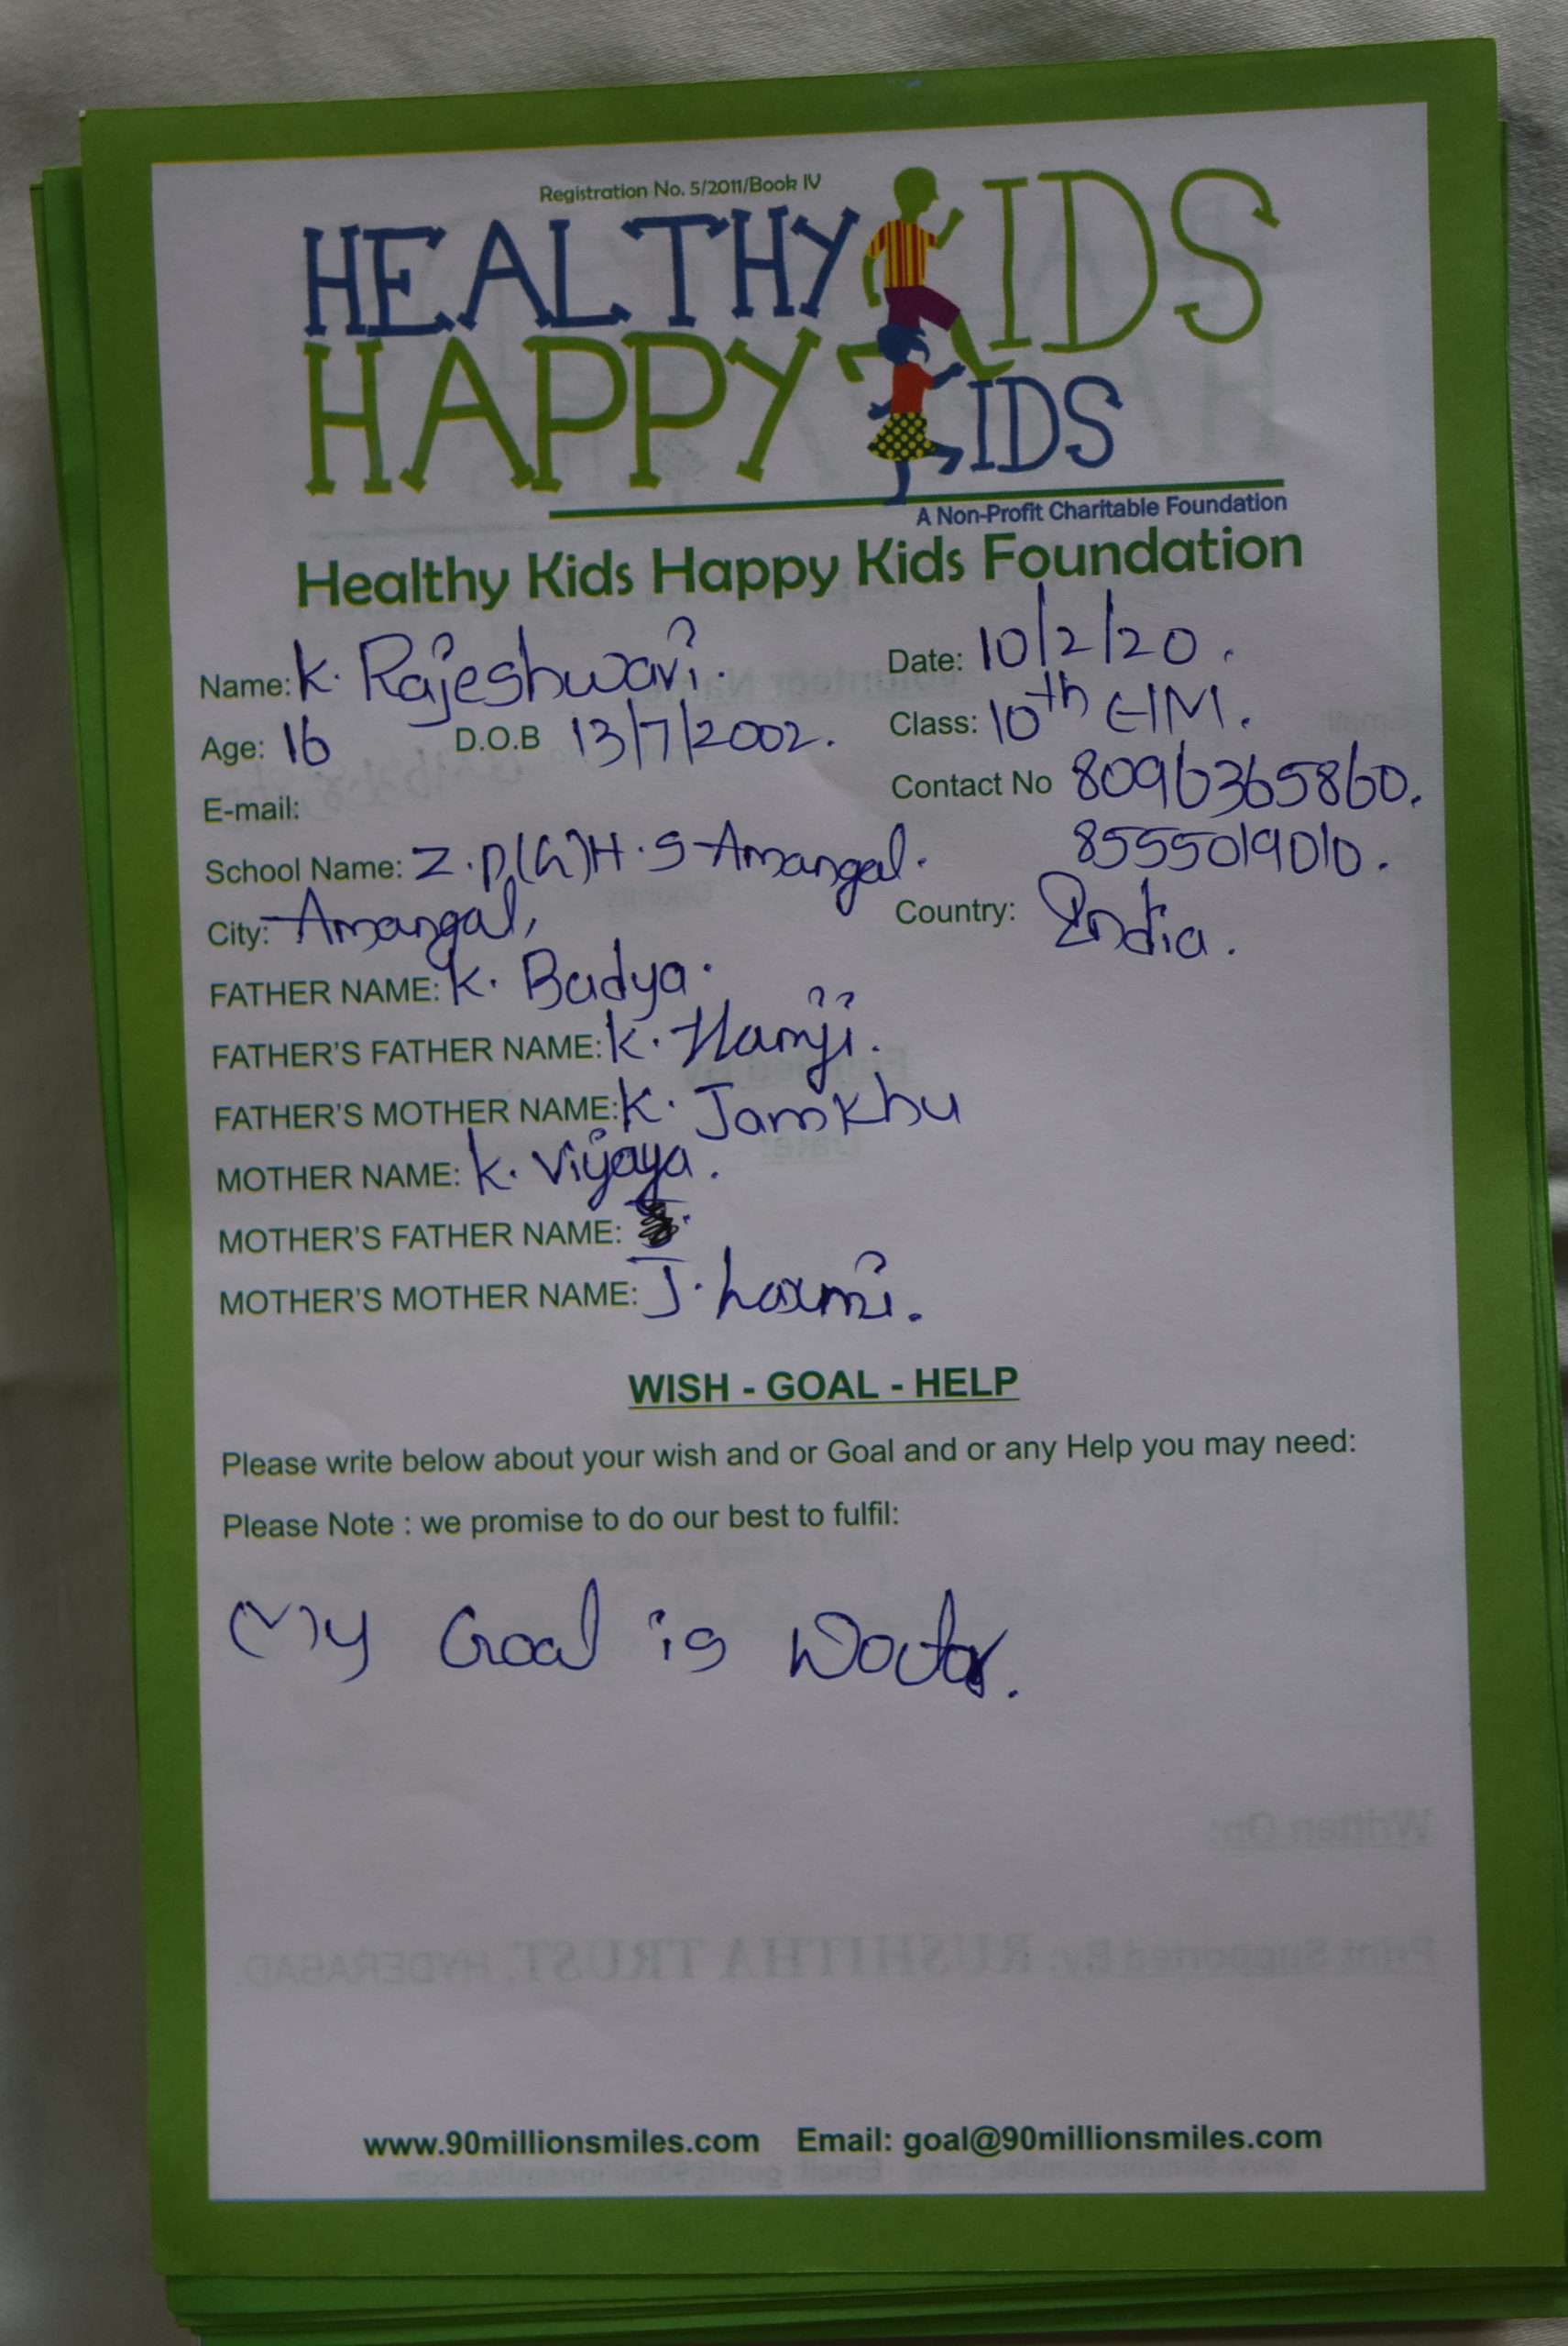 Registration No. 5/2011/Book IV
HEALTHY KIDS
HAPPY KIDS
A Non-Profit Charitable Foundation
Healthy Kids Happy Kids Foundation
Name: K. Rajeshwari. Date: 10/2/20.
Age: 16 D.O.B 13/7/2002. Class: 10th E/M.
E-mail: Contact No 8096365860.
School Name: Z.P(G)H.S Amangal. 8555019010.
City: Amangal, Country: India.
FATHER NAME: K. Badya.
FATHER'S FATHER NAME: K. Hamji.
FATHER'S MOTHER NAME: K. Jamkhu
MOTHER NAME: K. Vijaya.
MOTHER'S FATHER NAME:
MOTHER'S MOTHER NAME: J. Laxmi.
WISH - GOAL - HELP
Please write below about your wish and or Goal and or any Help you may need:
Please Note : we promise to do our best to fulfil:
My Goal is Doctor.
Written On:
Print Supported By: RUSHITHA TRUST, HYDERABAD.
www.90millionsmiles.com Email: goal@90millionsmiles.com